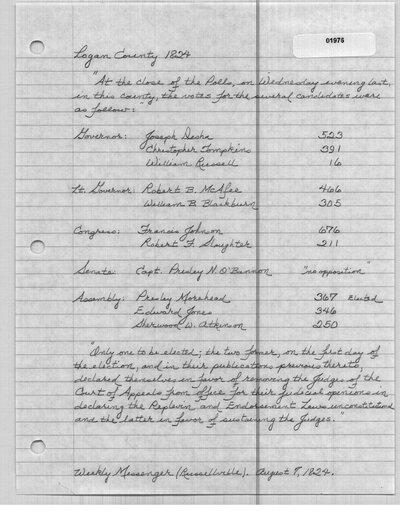 01975
Logan County 1824
"At the close of the Polls, on Wednesday evening last,
in this county, the votes for the several candidates were
as follow:
Governor: Joseph Desha 523
"Christopher Tompkins 391
"William Russell 16
Lt. Governor: Robert B. McAfee 466
William B. Blackburn 305
Congress: Francis Johnson 676
Robert F. Slaughter 211
Senate: Capt. Presley N. O'Bannon "no opposition"
Assembly: Presley Morehead 367 Elected
Edward Jones 346
Sherwood W. Atkinson 250
"Only one to be elected; the two former, on the first day of
the election, and in their publications previous thereto,
declared themselves in favor of removing the Judges of the
Court of Appeals from office for their judicial opinions in
declaring the Replevin and Endorsement Laws unconstitutional
and the latter in favor of sustaining the Judges."
Weekly Messenger (Russellville). August 7, 1824.